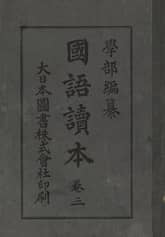 學部編纂
國語讀本 卷二
大日本圖書株式會社印刷